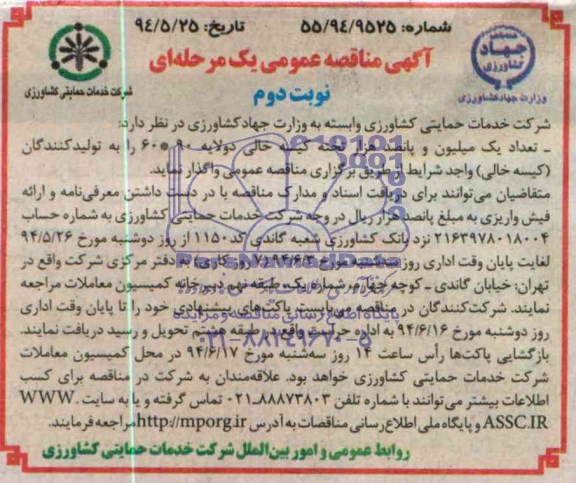 شماره: ۵۵/۹٤/۹۵۲۵
تاریخ: ۹٤/۵/۲۵
جهاد کشاورزی
وزارت جهاد کشاورزی
شرکت خدمات حمایتی کشاورزی
آگهی مناقصه عمومی یک مرحله‌ای
نوبت دوم
شرکت خدمات حمایتی کشاورزی وابسته به وزارت جهاد کشاورزی در نظر دارد:
ـ تعداد یک میلیون و پانصد هزار تخته کیسه خالی دولایه ۹۰ * ۶۰ را به تولیدکنندگان
(کیسه خالی) واجد شرایط از طریق برگزاری مناقصه عمومی واگذار نماید.
متقاضیان می‌توانند برای دریافت اسناد و مدارک مناقصه با در دست داشتن معرفی‌نامه و ارائه
فیش واریزی به مبلغ پانصد هزار ریال در وجه شرکت خدمات حمایتی کشاورزی به شماره حساب
۲۱۶۳۹۷۸۰۱۸۰۰۴ نزد بانک کشاورزی شعبه گاندی کد ۱۱۵۰ از روز دوشنبه مورخ ۹۴/۵/۲۶
لغایت پایان وقت اداری روز سه‌شنبه مورخ ۹۴/۶/۳ (۷ روز کاری) به دفتر مرکزی شرکت واقع در
تهران: خیابان گاندی ـ کوچه چهارم، شماره یک، طبقه نهم دبیرخانه کمیسیون معاملات مراجعه
نمایند. شرکت‌کنندگان در مناقصه می‌بایست پاکت‌های پیشنهادی خود را تا پایان وقت اداری
روز دوشنبه مورخ ۹۴/۶/۱۶ به اداره حراست واقع در طبقه هشتم تحویل و رسید دریافت نمایند.
بازگشایی پاکت‌ها رأس ساعت ۱۴ روز سه‌شنبه مورخ ۹۴/۶/۱۷ در محل کمیسیون معاملات
شرکت خدمات حمایتی کشاورزی خواهد بود. علاقه‌مندان به شرکت در مناقصه برای کسب
اطلاعات بیشتر می‌توانند با شماره تلفن ۸۸۸۷۳۸۰۳-۰۲۱ تماس گرفته و یا به سایت WWW.
ASSC.IR و پایگاه ملی اطلاع رسانی مناقصات به آدرس http://mporg.ir مراجعه فرمایند.
روابط عمومی و امور بین‌الملل شرکت خدمات حمایتی کشاورزی
پایگاه اطلاع رسانی مناقصه و مزایده
۰۲۱-۸۸۳۴۹۶۷۰-۵